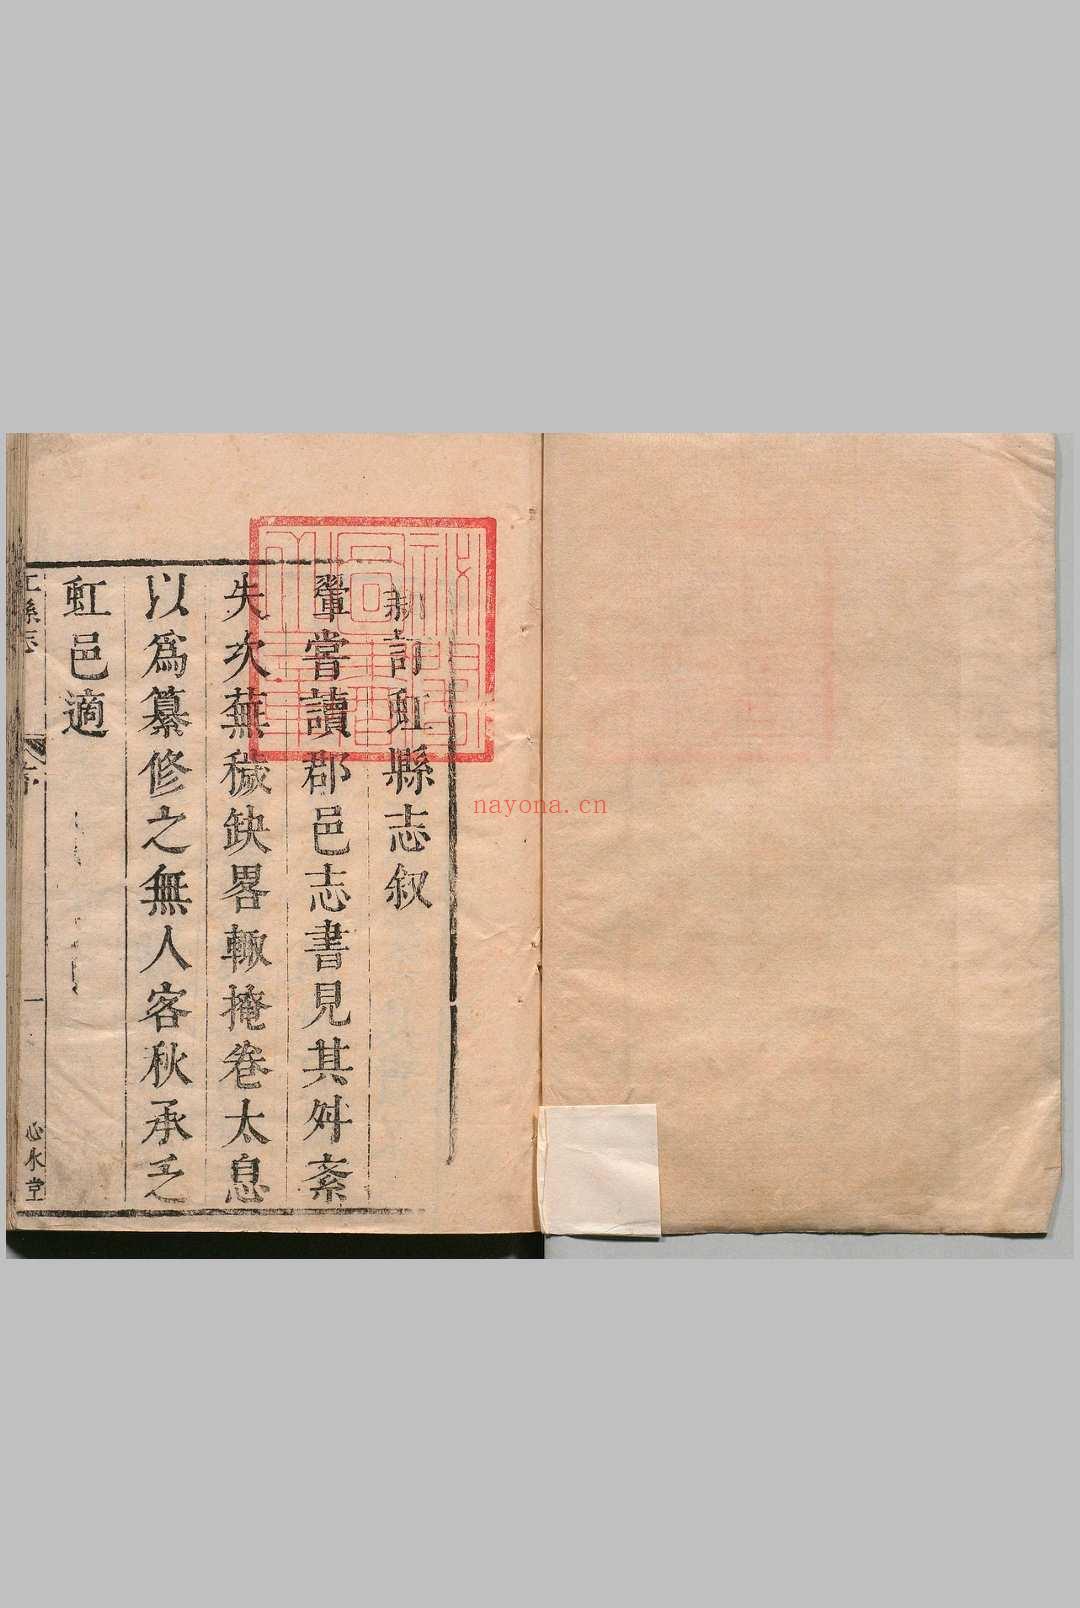 訂虹縣志叙
鞏嘗讀郡邑志書見其舛紊
失次蕪穢缺畧輒掩卷太息
以爲纂修之無人客秋承乏
虹邑適
縣志
序
一
心水堂
nayona.cn